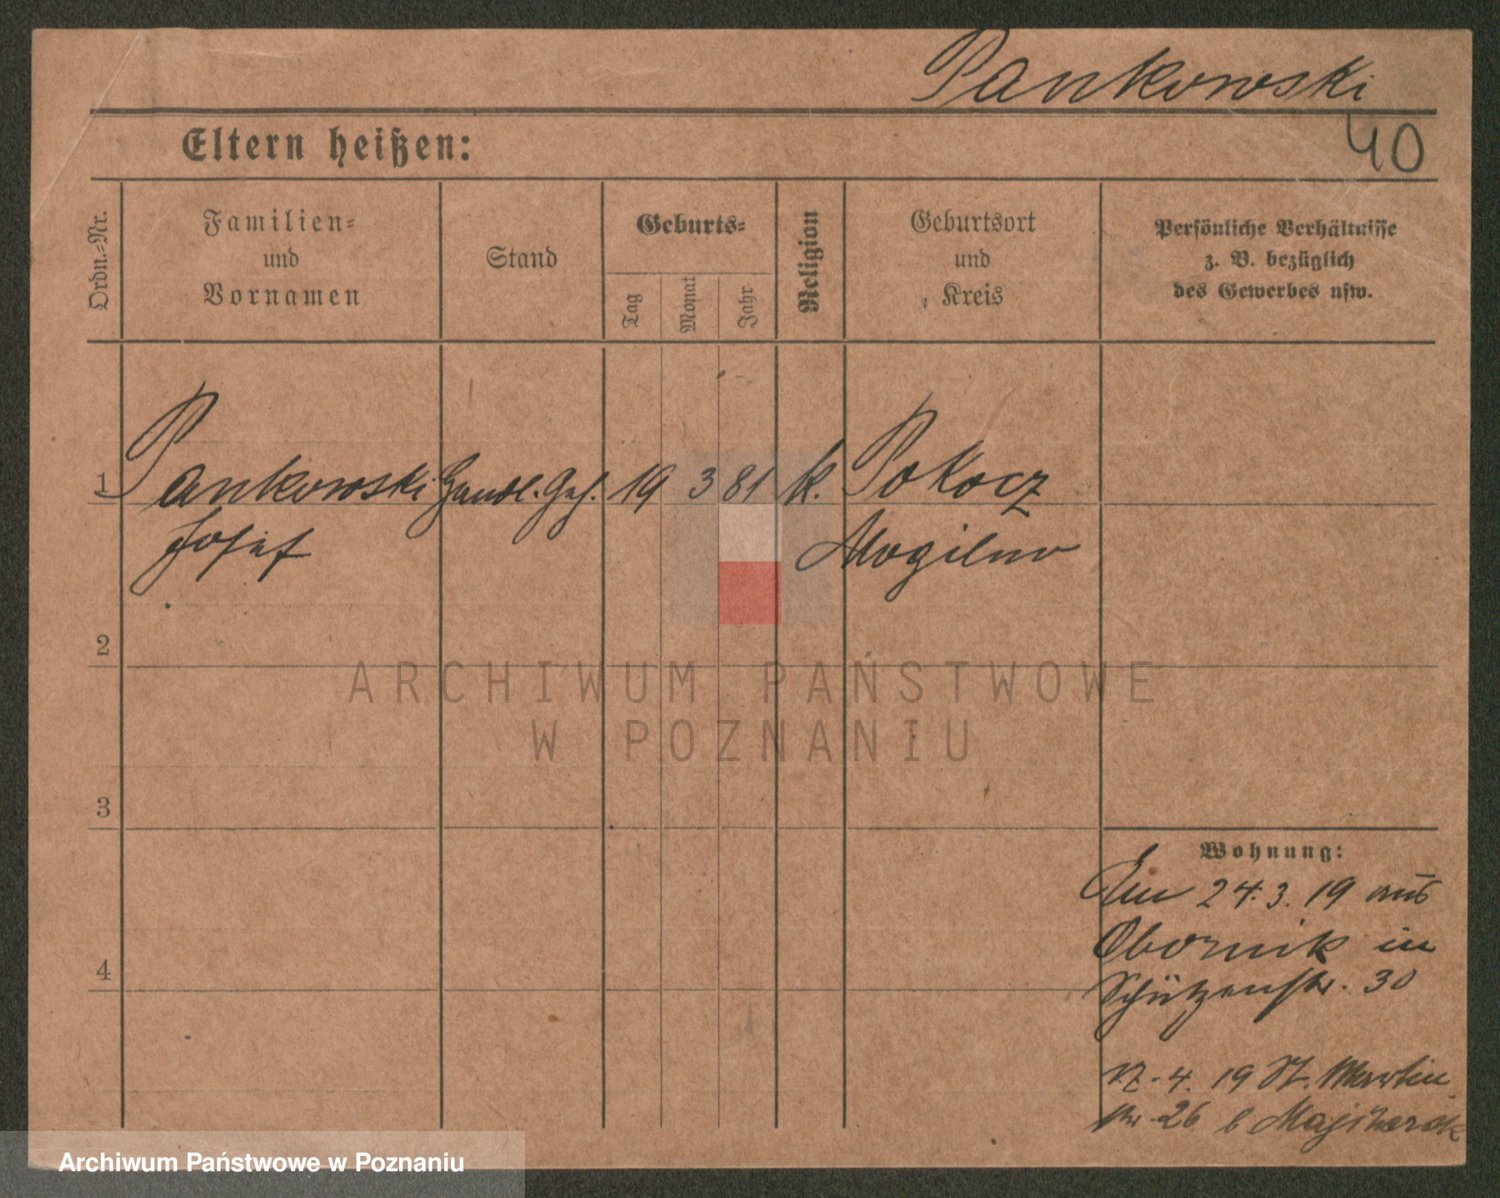 Pankowski
40
Eltern heißen:
Ordn.-Nr.
Familien-
und
Vornamen
Stand
Geburts-
Tag
Monat
Jahr
Religion
Geburtsort
und
Kreis
Persönliche Verhältnisse
z. B. bezüglich
des Gewerbes usw.
1 Pankowski Handl. Geh. 19 3 81 k. Pokocz
Josef Mogilno
2
ARCHIWUM PAŃSTWOWE
W POZNANIU
3
Wohnung:
24.3.19 aus
Obornik in
4
Schützenstr. 30
17.4.19 St. Martin
str. 26 b
Archiwum Państwowe w Poznaniu